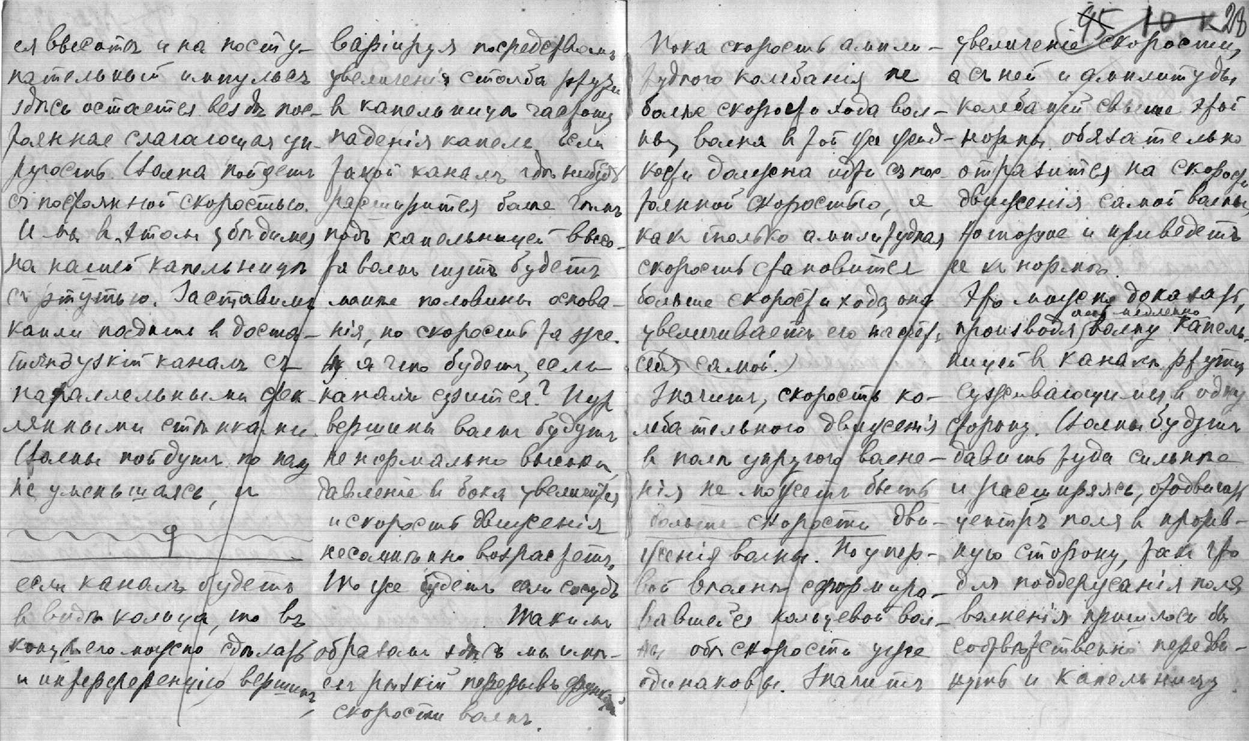 ея высотъ и на посту-
пательный импульсъ
здѣсь остается вездѣ пос-
тоянное слагающая уп-
ругость. Волна пойдетъ
съ постоянной скоростью.
И мы въ этомъ убѣдимся
на нашей капельницѣ
съ ртутью. Заставимъ
капли падать в доста-
каналъ съ
параллельными стек-
лянными стѣнками.
Волны пойдутъ по нему
не уменьшаясь, и
если каналъ будетъ
в видѣ кольца, то въ
концѣ его можно сдѣлать
и интерференцію вершинъ,
варіируя посредствомъ
увеличенія столба ртути
в капельницѣ частоту
паденія капель, если
такой каналъ гдѣ нибудь
расширится болѣе чѣмъ
подъ капельницей высо-
та волнъ тутъ будетъ
менѣе половины основа-
нія, но скорость та же.
Ну а что будетъ, если
каналъ сузится? Тутъ
вершины волнъ будутъ
ненормально высоки,
давленіе в бока увеличится
и скорость движенія
несомнѣнно возрастетъ.
То же будетъ если сосудъ
Такимъ
образомъ здѣсь мы имѣ-
емъ рѣзкій перерывъ функціи
скорости волнъ.
45 10 к 28
Пока скорость ампли-
туднаго колебанія не
болѣе скорости хода вол-
ны, волна в той же жид-
кости должна идти съ пос-
тоянной скоростью, а
какъ только амплитудная
скорость становится
больше скорости хода она
увеличиваетъ его
себя самой.)
Значитъ, скорость ко-
лебательнаго движенія
в полѣ упругого волне-
нія не можетъ быть
больше скорости дви-
женія волны. Но у пер-
вой вполнѣ сформиро-
вавшейся кольцевой вол-
ны обѣ скорости уже
одинаковы. Значитъ
увеличеніе скорости,
а съ ней и амплитуды
колебаній свыше этой
нормы, обязательно
отразится на скорости
движенія самой волны,
которое и приведетъ
ее к нормѣ.
Это можно доказать,
медленно
производя волну капель-
ницей в каналѣ ртути
суживающимися в одну
сторону. Волны будутъ
давить туда сильнѣе
и расширяясь, отодвигать
центръ поля в против-
ную сторону, такъ что
для поддержанія поля
волненія пришлось бы
соотвѣтственно передви-
нуть и капельницу.